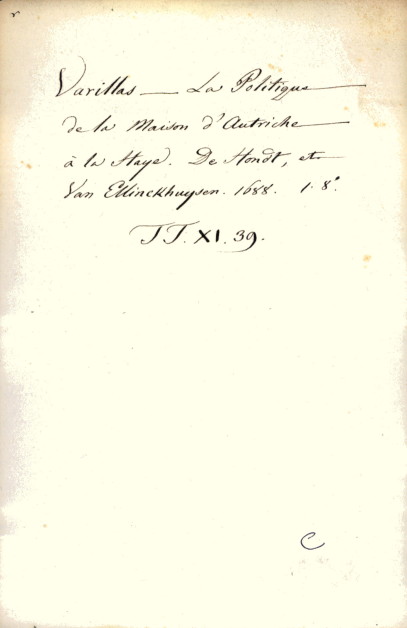 Varillas — La Politique —
de la Maison d'Autriche —
à la Haye. De Hondt, et
Van Ellinckhuysen. 1688. 1. 8°.
TT. XI. 39.
C